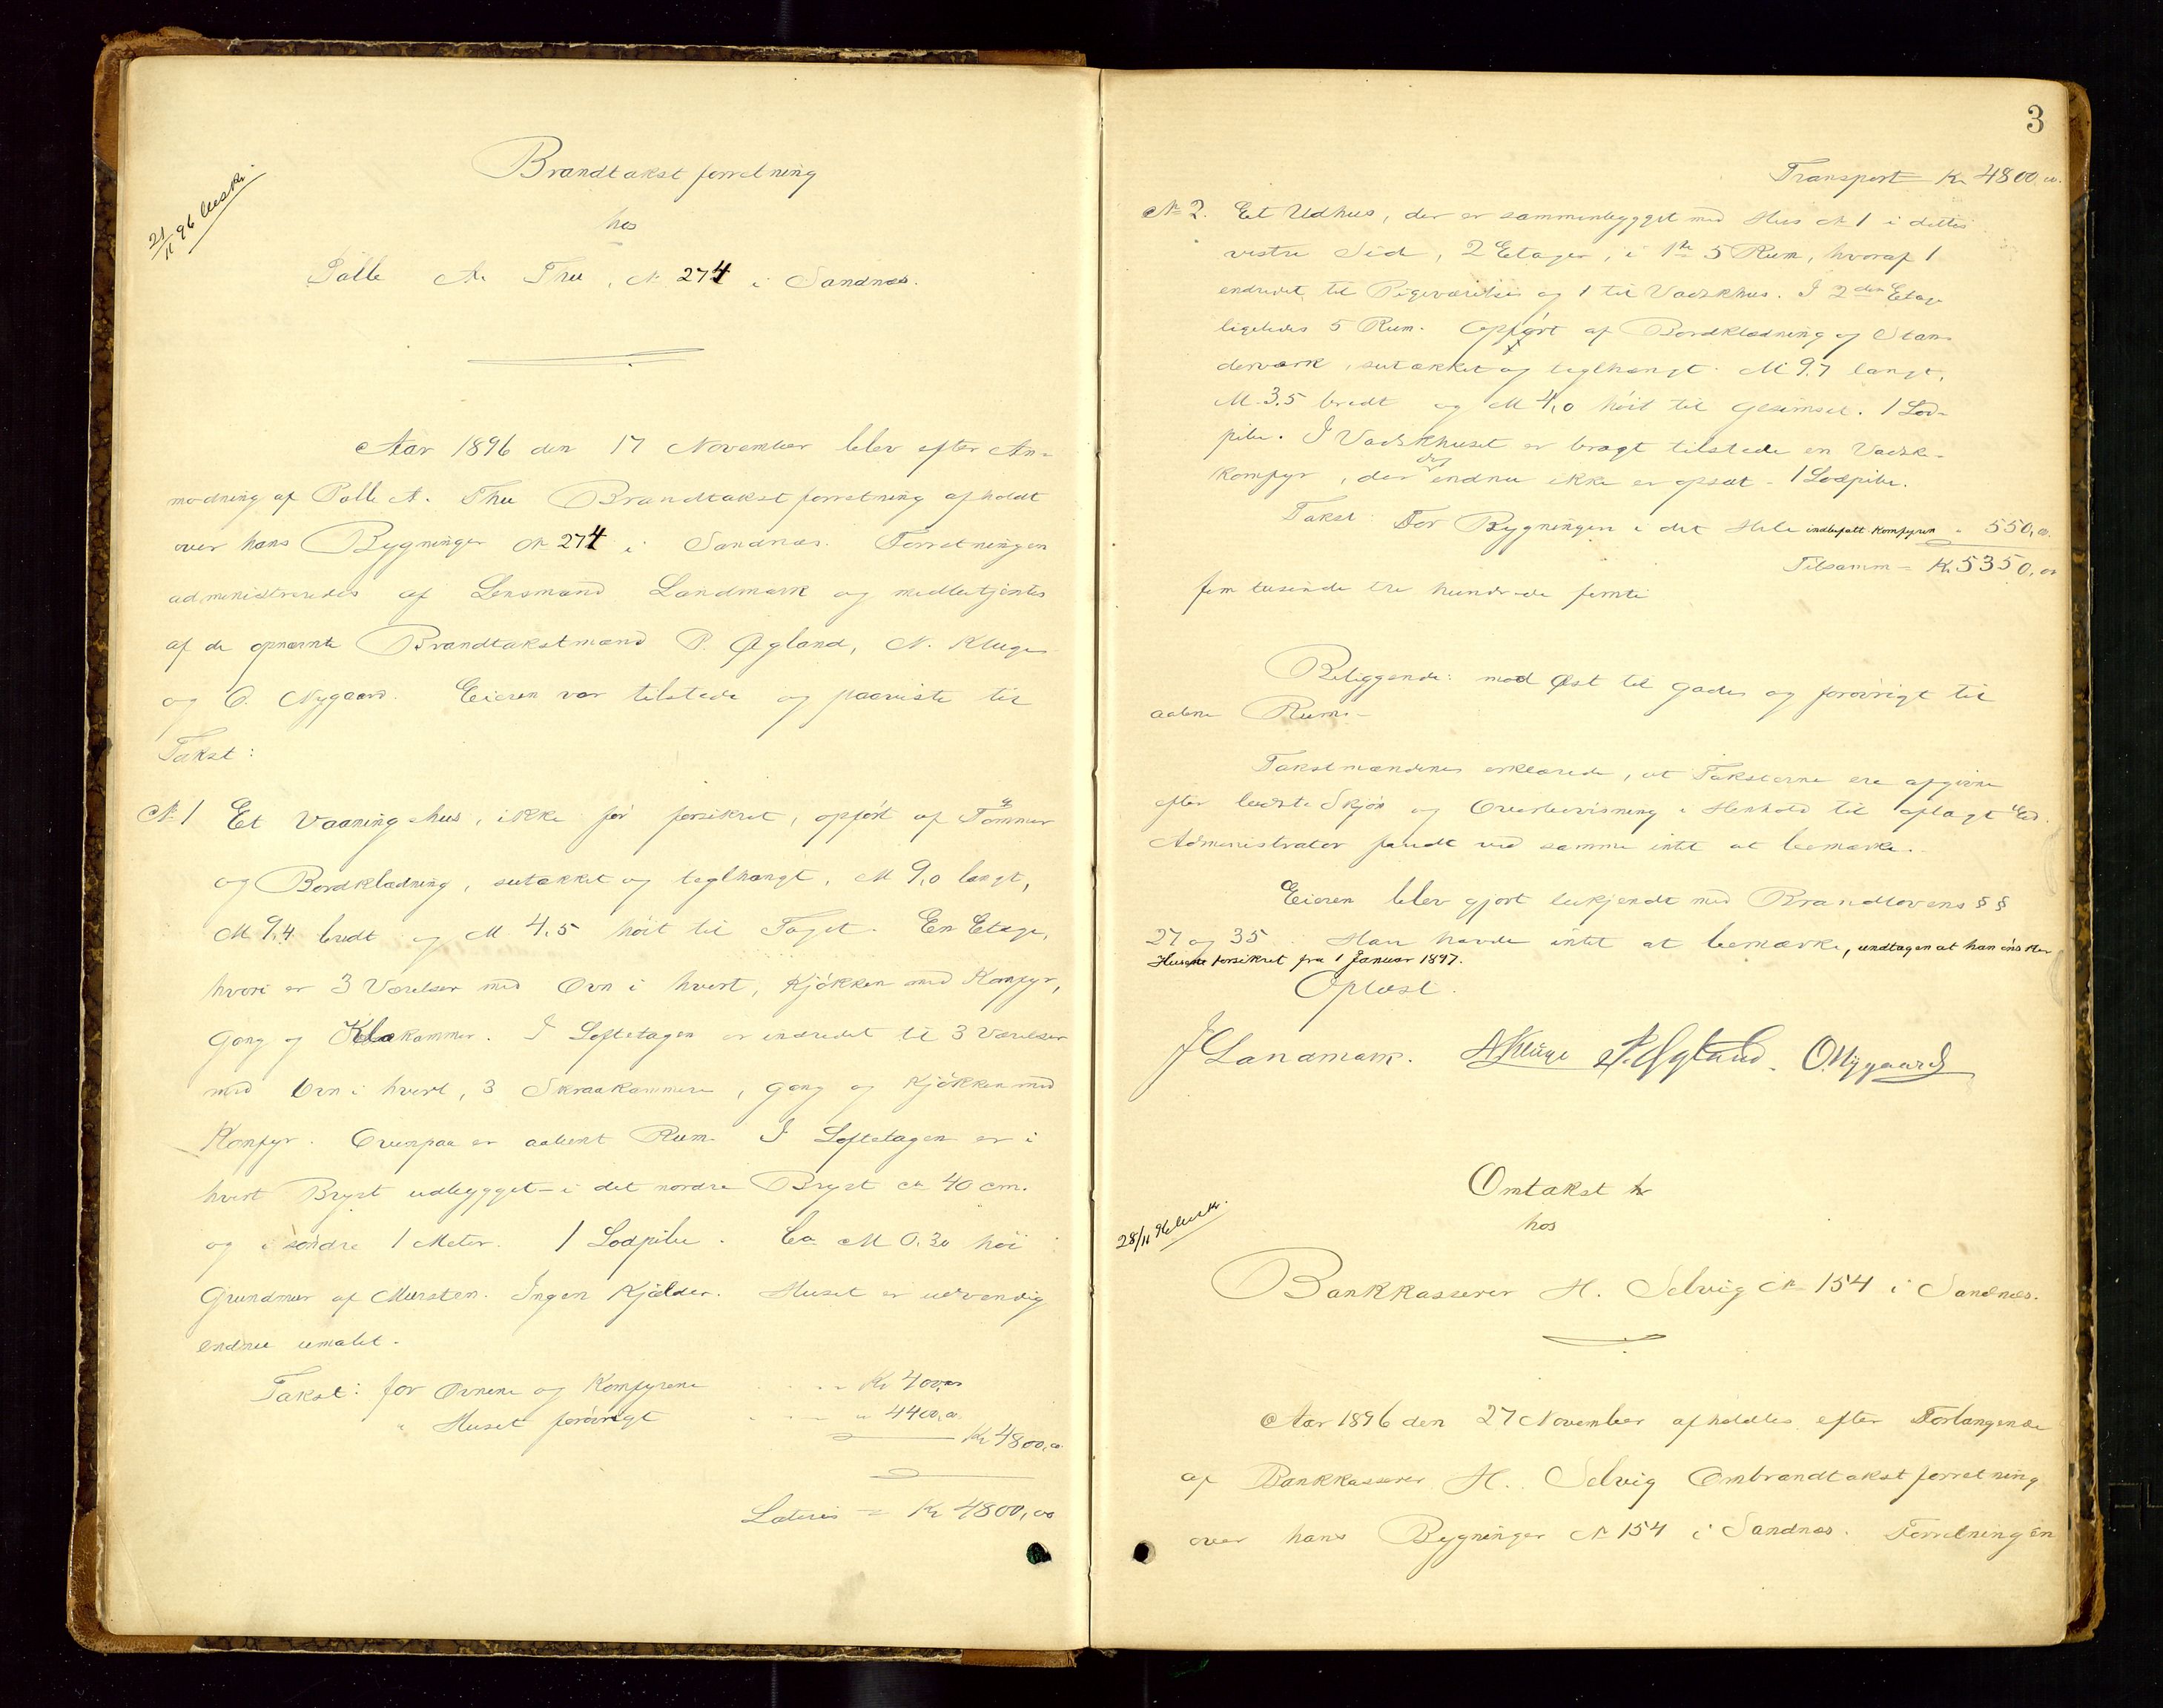 21/11 96 udsk.
Brandtakstforretning
hos
Palle A. Thu, № 274 i Sandnæs.
Aar 1896 den 17 November blev efter An-
modning af Palle A. Thu Brandtakstforretning afholdt
over hans Bygninger № 274 i Sandnæs. Forretningen
administreredes af Lensmand Landmark og medbetjentes
af de opnævnte Brandtakstmænd P. Øgland, N. Kluge
og O. Nygaard. Eieren var tilstede og paaviste til
Takst:
№ 1 Et Vaaningshus, ikke før forsikret, opført af Tømmer
og Bordklædning, sutækket og teglhængt, M 9,0 langt,
M 9,4 bredt og M 4,5 høit til Taget. En Etage,
hvori er 3 Værelser med Ovn i hvert, Kjøkken med Komfyr,
Gang og Klækammer. I Loftetagen er indredet til 3 Værelser
med Ovn i hvert, 3 Skraakammere, Gang og Kjøkken med
Komfyr. Ovenpaa er aabent Rum. I Loftetagen er i
hvert Bryst udbygget - i det nordre Bryst ca 40 cm.
og i søndre 1 Meter. 1 Lodpibe. Ca M 0.30 høi
Grundmur af Mursten. Ingen Kjælder. Huset er udvendig
endnu umalet.
Takst: for Ovnene og Komfyrene . . . . Kr 400,00
" Huset forøvrigt . . . . " 4400,00
Kr 4800,00
Lateris = Kr 4800,00
3
Transport Kr 4800,00.
№ 2. Et Udhus, der er sammenbygget med Hus № 1 i dettes
vestre Side, 2 Etager, i 1ste 5 Rum, hvoraf 1
indredet til Pigeværelse og 1 til Vadskhus. I 2den Etage
ligeledes 5 Rum. Opført af Bordklædning og Stan-
derværk, sutækket og teglhængt. M 9.7 langt,
M 3.5 bredt og M 4,0 høit til Gesimset. 1 Lod-
pibe. I Vadskhuset er bragt tilstede en Vadske-
komfyr, der dog endnu ikke er opsat - 1 Lodpibe.
Takst: For Bygningen i det Hele indbefatt. Komfyren " 550,00.
Tilsamm = Kr. 5350,00
fem tusinde tre hundrede femti
Beliggende: mod Øst til Gaden og forøvrigt til
aabne Rum. -
Takstmændene erklærede, at Taksterne ere afgivne
efter bedste Skjøn og Overbevisning i Henhold til aflagt Ed.
Administrator fandt ved samme intet at bemærke. -
Eieren blev gjort bekjendt med Brandlovens § §
27 og 35. Han havde intet at bemærke, undtagen at han ønsker
Husene forsikret fra 1 Januar 1897.
Oplæst.
J Landmark. N Kluge P. Øgland. O. Nygaard
28/11 96 udsk.
Omtakst
hos
Bankkasserer H. Selvig № 154 i Sandnæs.
Aar 1896 den 27 November afholdtes efter Forlangende
af Bankkasserer H. Selvig Ombrandtakstforretning
over hans Bygninger № 154 i Sandnæs. Forretningen